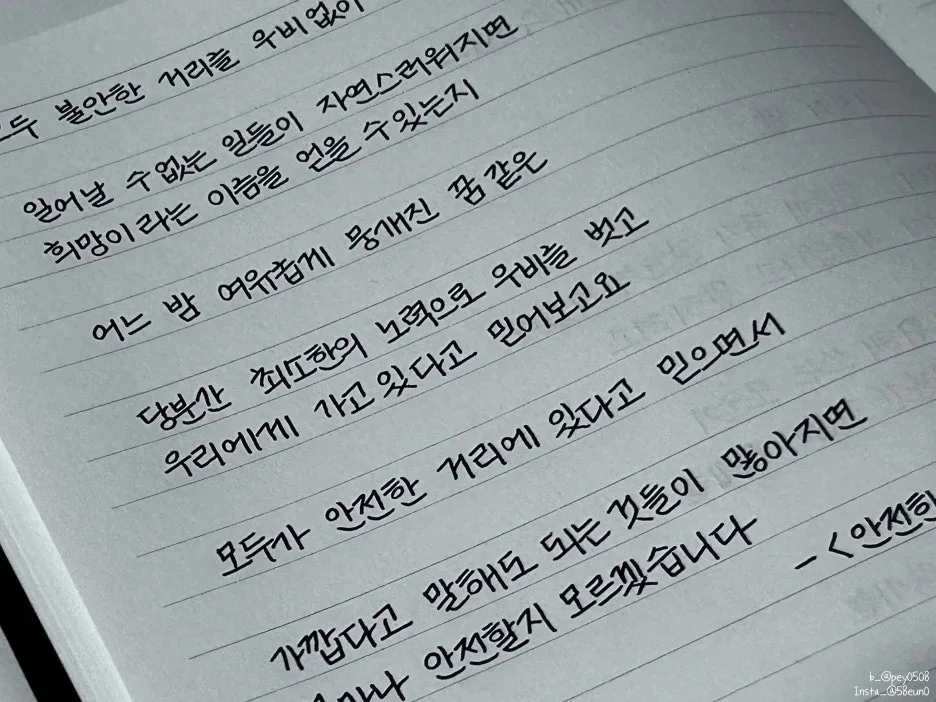 모두 불안한 거리를 우비 없이
일어날 수 없는 일들이 자연스러워지면
희망이라는 이름을 얻을 수 있는지
어느 밤 여유롭게 뭉개진 꿈 같은
당분간 최소한의 노력으로 우비를 벗고
우리에게 가고 있다고 믿어보고요
모두가 안전한 거리에 있다고 믿으면서
가깝다고 말해도 되는 것들이 많아지면
안전할지 모르겠습니다
- <안전한
b_@pey0508
Insta_@58eun0